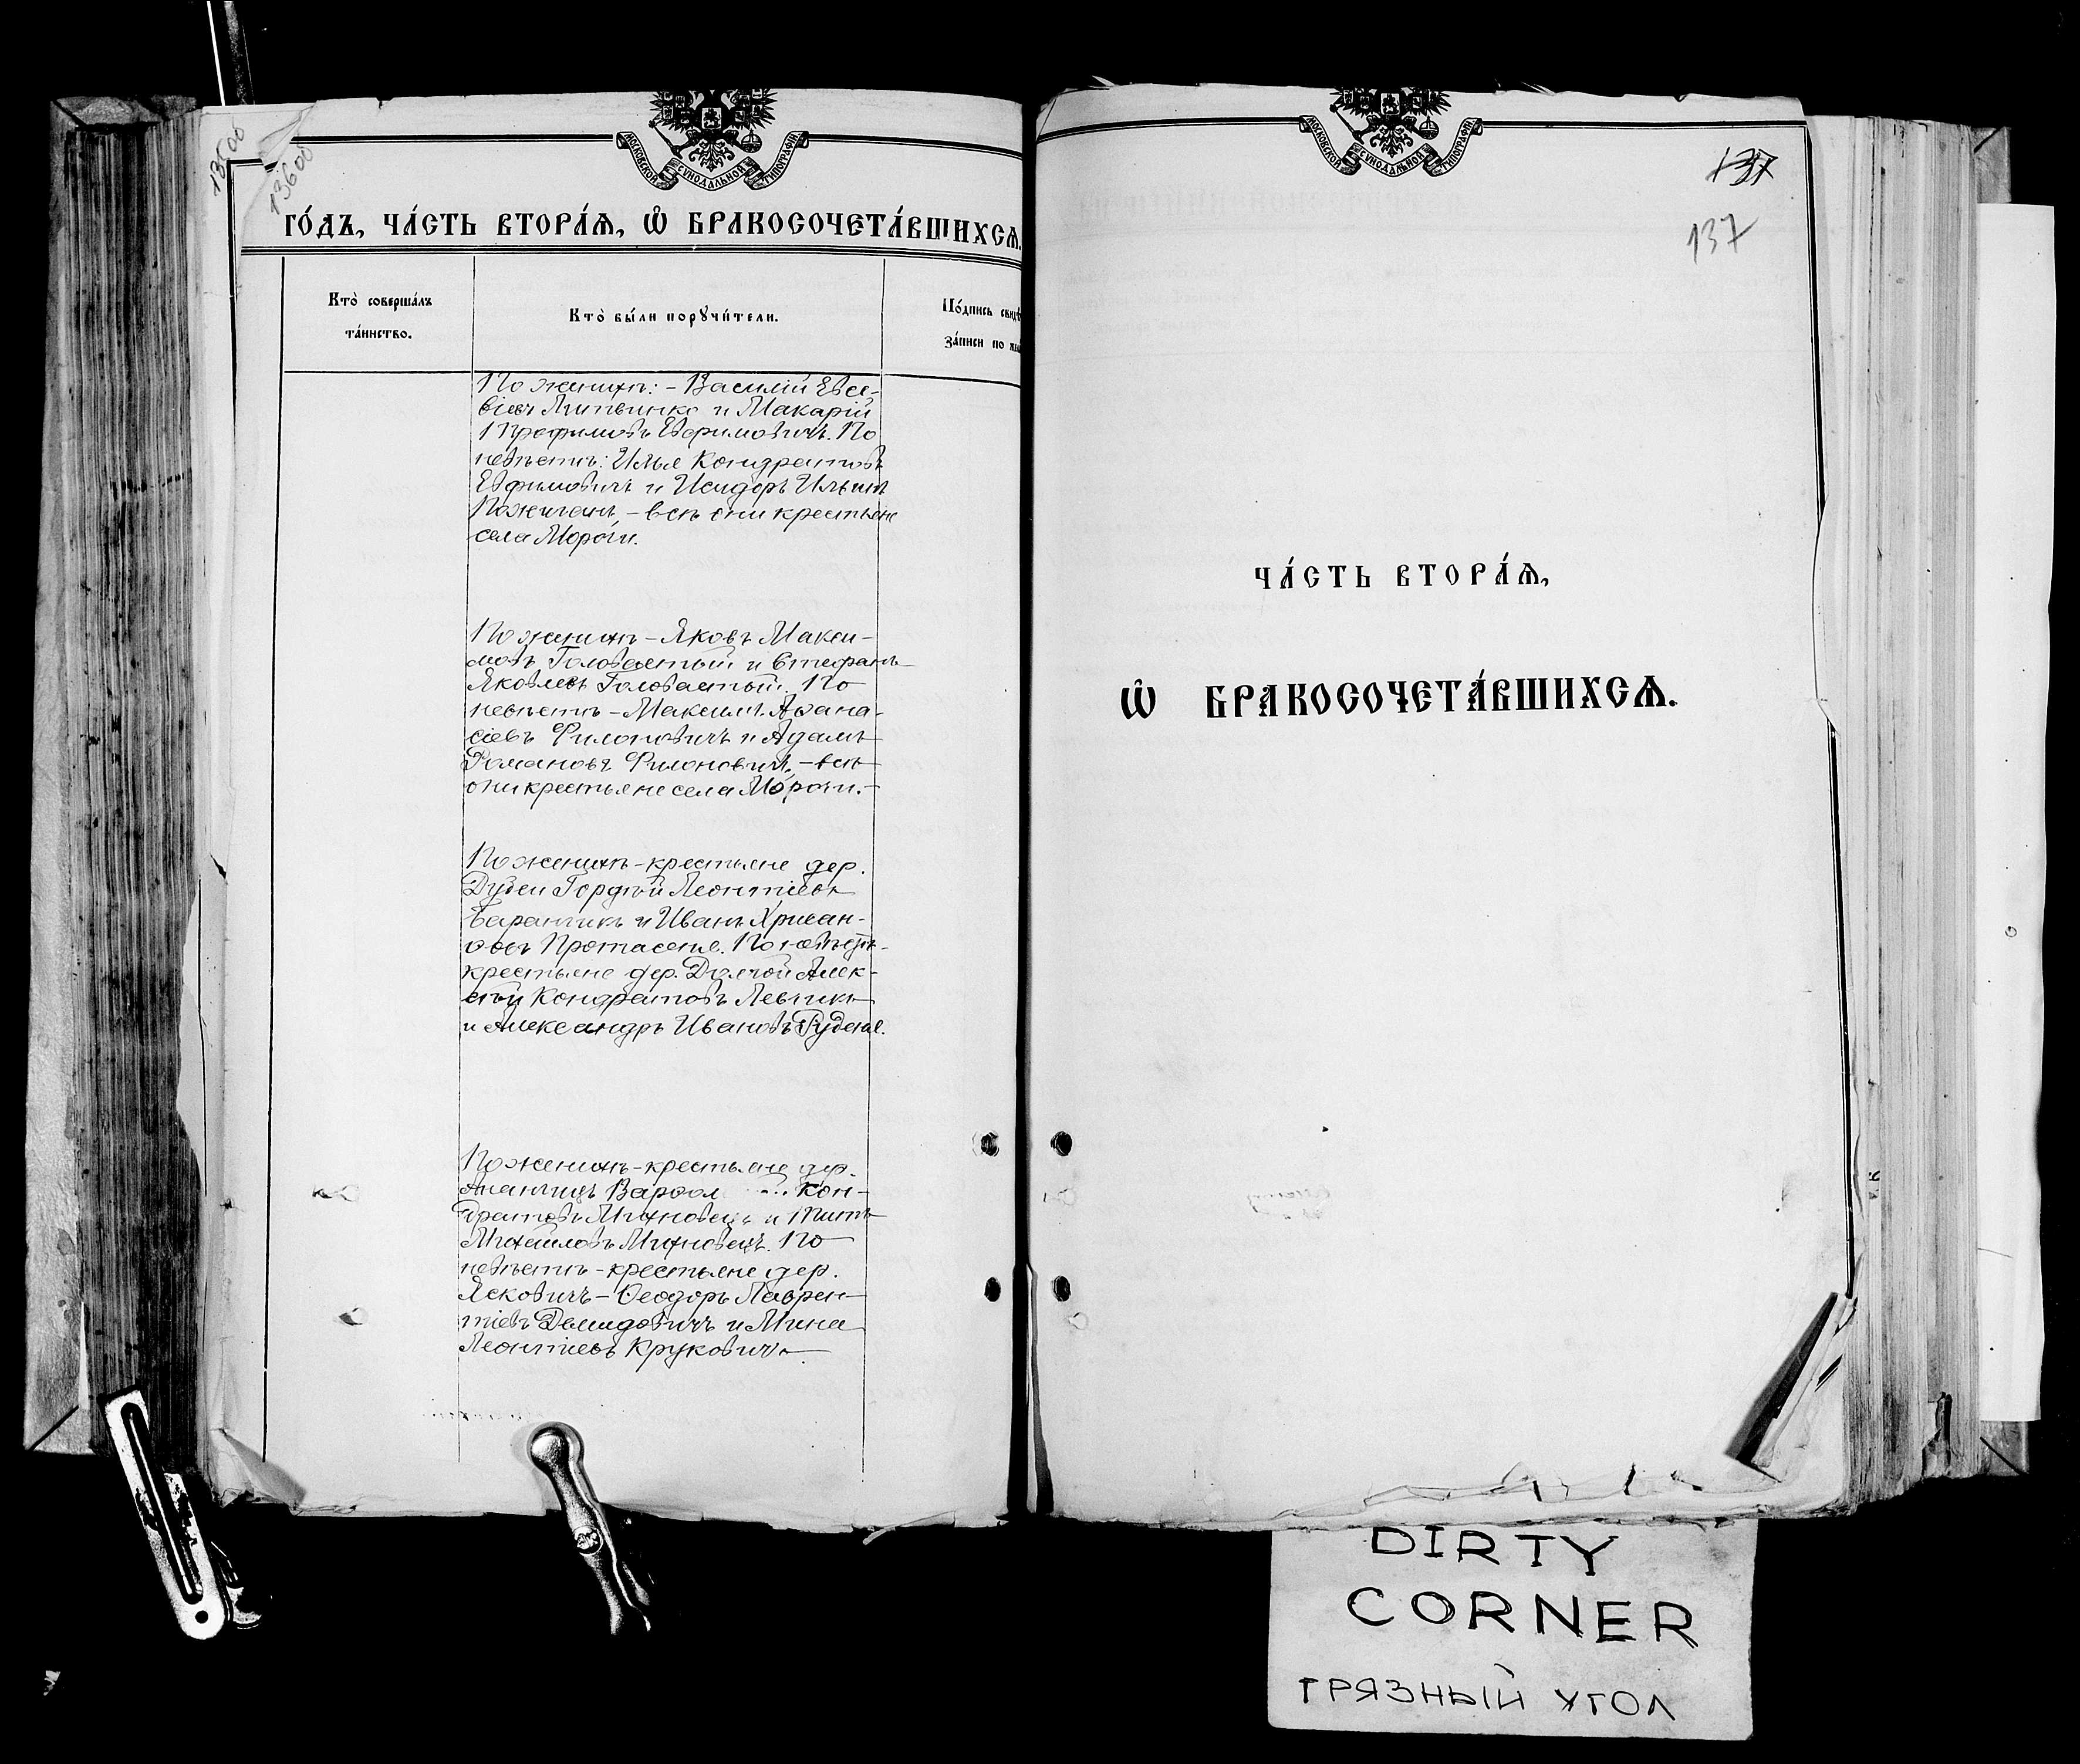 13600
13600
МОСКОВСКОЙ СѴНОДАЛЬНОЙ ТИПОГРАФІИ
ГО́ДЪ, ЧА́СТЬ ВТОРА́Ѧ, Ѽ БРАКОСОЧЕТА́ВШИХСѦ.
Кто̀ соверша́лъ
та́инство.
Кто̀ бы́ли порꙋчи́тели.
По́дпись свидѣ
за́писи по
По женихѣ: – Василій Евсе-
віевъ Литвинко и Макарій
Трофимовъ Ефимовичъ. По
невѣстѣ: Илья Кондратовъ
Ефимовичъ и Исидоръ Ильинъ
– всѣ они крестьяне
села Морочи.
По женихѣ – Яковъ Макси-
мовъ Головастый и Стефанъ
Яковлевъ Головастый. По
невѣстѣ – Максимъ Аѳана-
сіевъ Филоновичъ и Адамъ
Романовъ Филоновичъ, – всѣ
они крестьяне села Морочи. –
По женихѣ – крестьяне дер.
Гордѣй Леонтіевъ
Баранчикъ и Иванъ Хрисан-
ѳовъ Протасеня. По невѣстѣ –
крестьяне дер. Долгой Алек-
сѣй Кондратовъ Левчикъ
и Александръ Ивановъ Руденя.
По женихѣ – крестьяне дер.
Ананчицъ Варѳол ... Кон-
дратовъ Михновецъ и Титъ
Михайловъ Михновецъ. По
невѣстѣ – крестьяне дер.
Ясковичъ – Ѳеодоръ Лаврен-
тіевъ Демидовичъ и Мина
Леонтіевъ Круковичъ
МОСКОВСКОЙ СѴНОДАЛЬНОЙ ТИПОГРАФІИ
137
ЧА́СТЬ ВТОРА́Ѧ,
Ѽ БРАКОСОЧЕТА́ВШИХСѦ.
DIRTY
CORNER
ГРЯЗНЫЙ УГОЛ